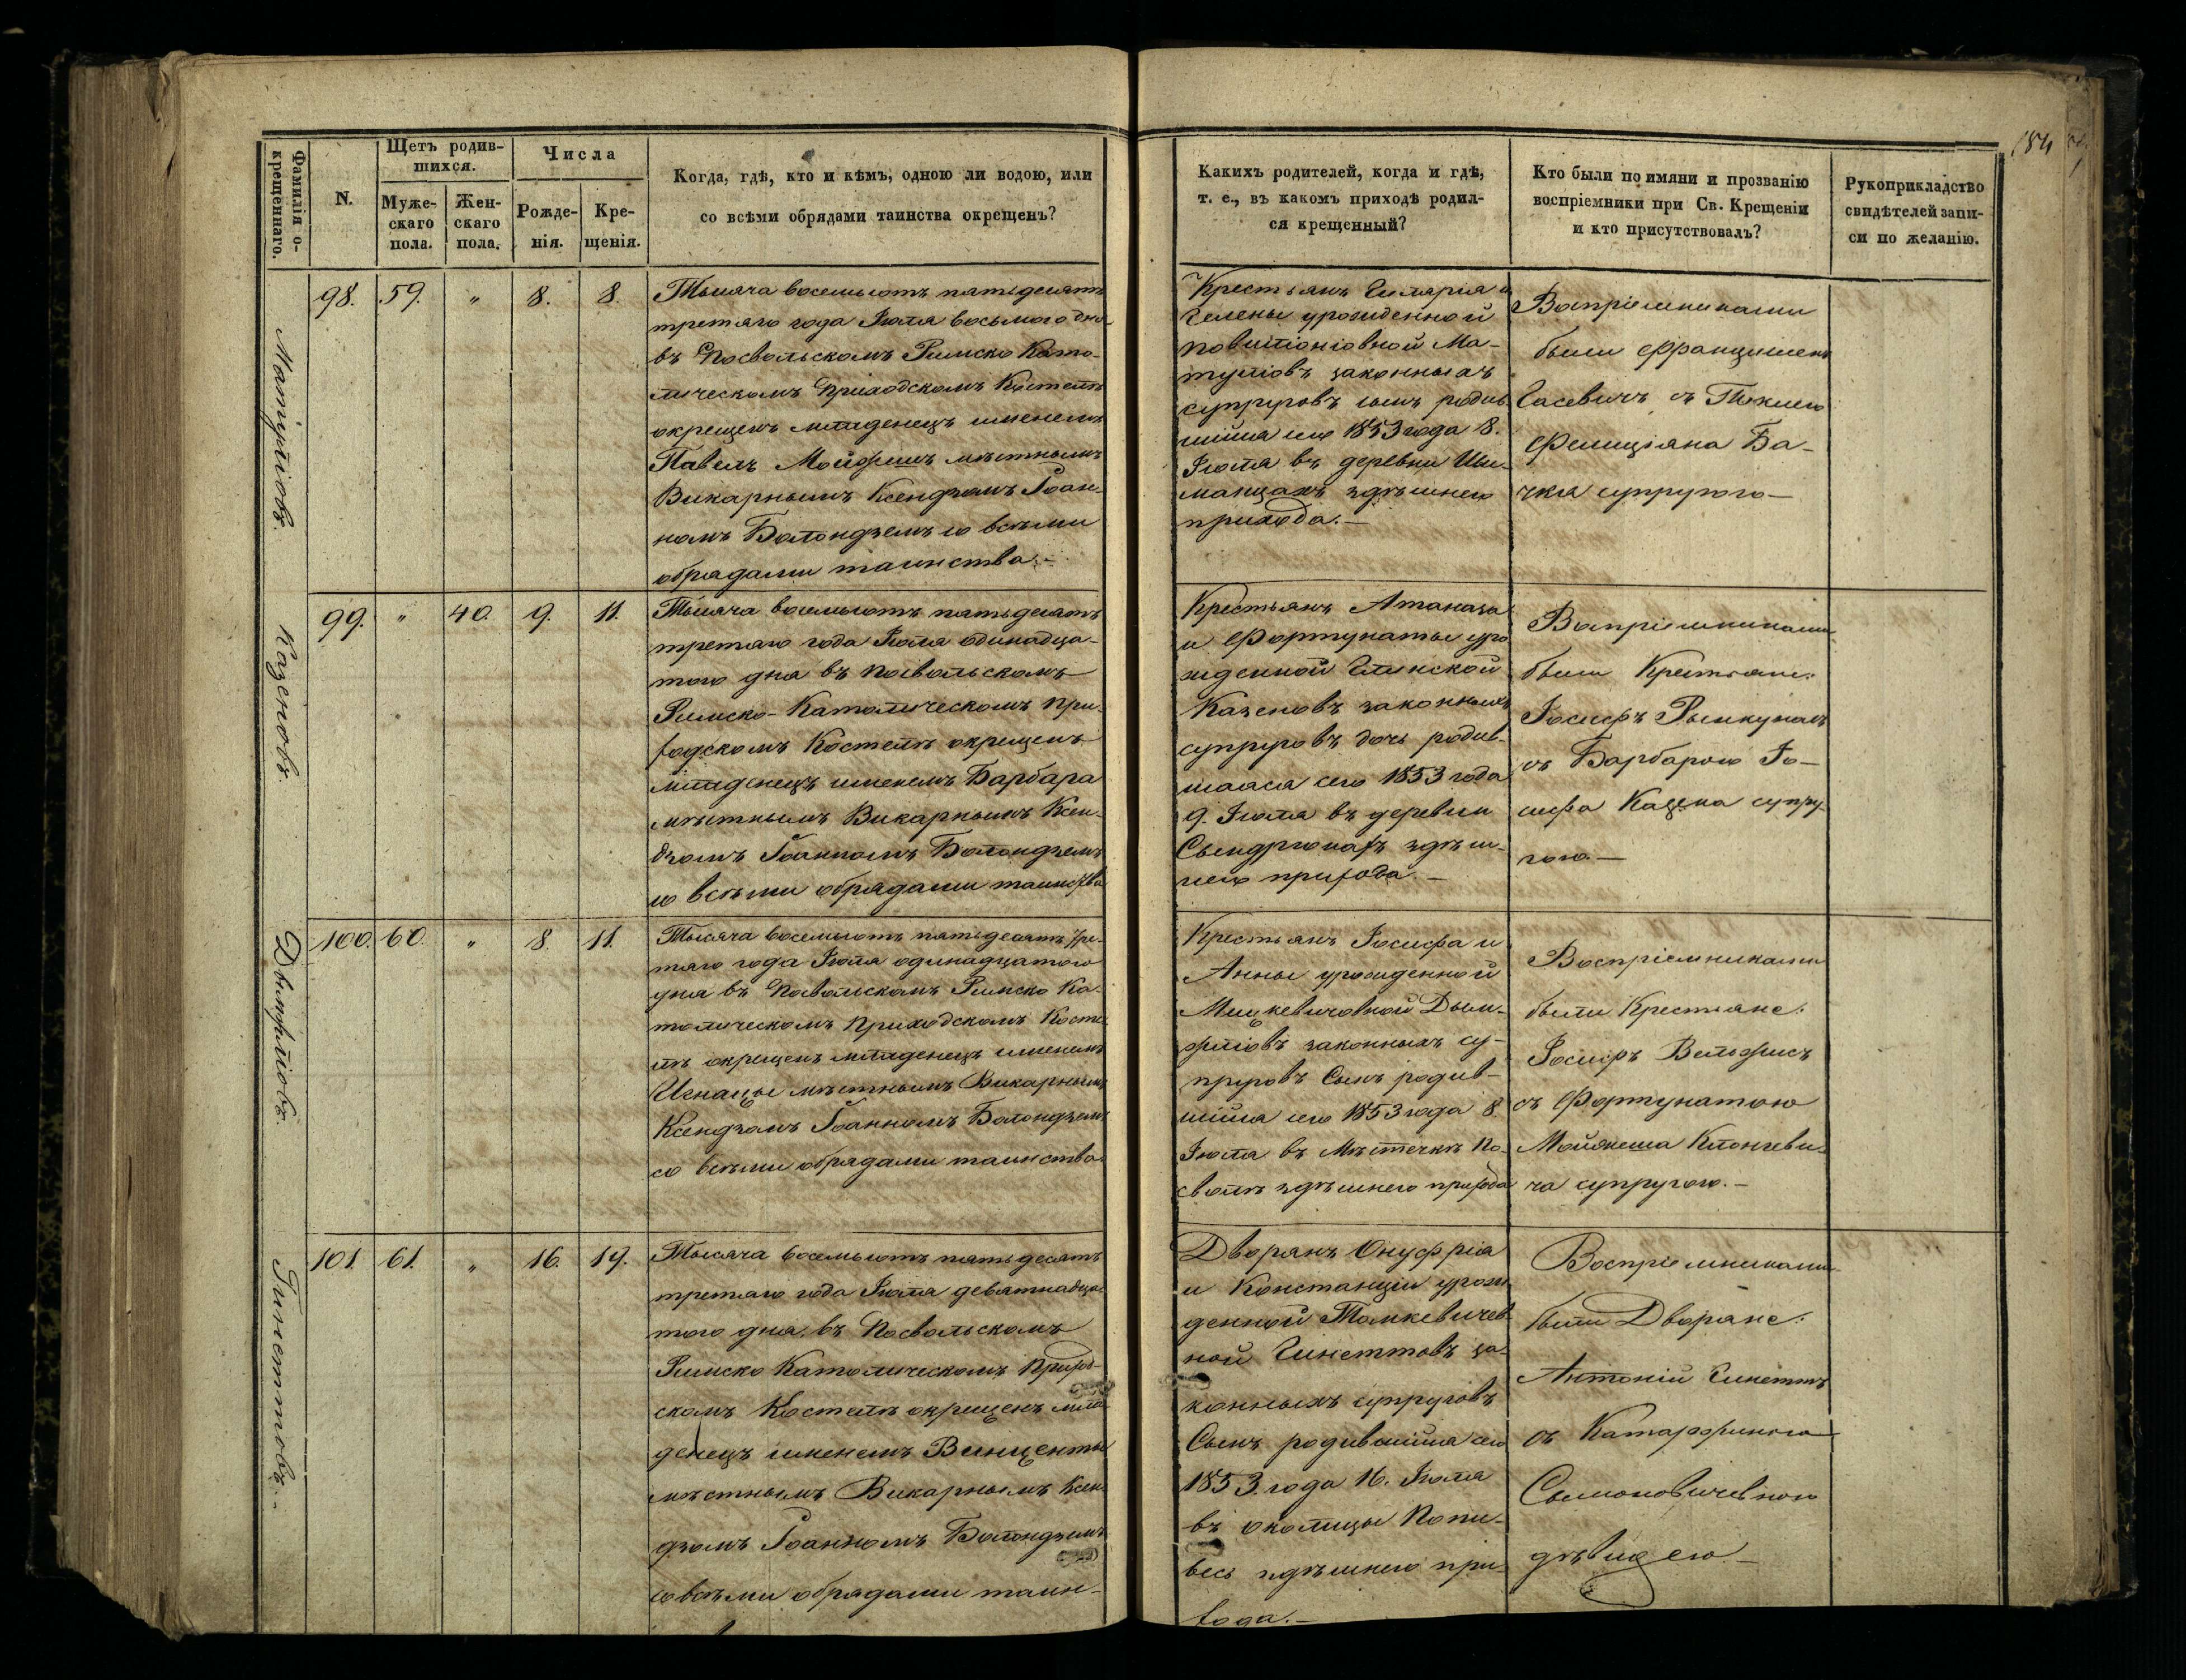 184
Фамилія о-
крещеннаго.
N.
Щетъ родив-
шихся.
Муже-
скаго
пола.
Жен-
скаго
пола.
Числа
Рожде-
нія.
Кре-
щенія.
Когда, гдѣ, кто и кѣмъ, одною ли водою, или
со всѣми обрядами таинства окрещенъ?
Какихъ родителей, когда и гдѣ,
т. е., въ какомъ приходѣ родил-
ся крещенный?
Кто были по имяни и прозванію
воспріемники при Св. Крещеніи
и кто присутствовалъ?
Рукоприкладство
свидѣтелей запи-
си по желанію.
98. 59. " 8. 8.
Тысяча восемьсотъ пятьдесятъ
третяго года Іюля восьмого дня
въ Посвольскомъ Римско Като-
лическомъ Приходскомъ Костелѣ
окрещенъ младенецъ именемъ
Павелъ мѣстнымъ
Викарнымъ Ксендзомъ Іоан-
номъ Болондземъ со всѣми
обрядами таинства.-
Крестьянъ Гиларія и
Гелены урожденной
Ма-
тулѣовъ законныхъ
супруговъ сынъ родив-
шійся сего 1853 года 8.
Іюля въ деревни
здѣшнего
прихода.-
Воспріемниками
были Францишекъ
съ Теклею
Фелиціяна Ба-
супругою-
99. " 40. 9. 11.
Казеновъ.
Тысяча восемьсотъ пятьдесятъ
третяго года Іюля одинадца-
того дня въ Посвольскомъ
Римско-Католическомъ При-
ходскомъ Костелѣ окрещенъ
младенецъ именемъ Барбара
мѣстнымъ Викарнымъ Ксен-
дзомъ Іоанномъ Болондземъ
со всѣми обрядами таинства
Крестьянъ Атаназа
и Фортунаты уро
жденной Глинской
Казеновъ законныхъ
супруговъ дочь родив-
шаяся сего 1853 года
9. Іюля въ деревни
здѣш-
него прихода.-
Воспріемниками
были Крестьяне:
Іосифъ Рымкунасъ
съ Барбарою Іо-
сифа Казена супру-
гою.-
100. 60. " 8. 11.
Тысяча восемьсотъ пятьдесятъ тре-
тяго года Іюля одинадцатого
дня въ Посвольскомъ Римско Ка-
толическомъ Приходскомъ Косте-
лѣ окрещенъ младенецъ именемъ
Игнацы мѣстнымъ Викарнымъ
Ксендзомъ Іоанномъ Болондземъ
со всѣми обрядами таинства.
Крестьянъ Іосифа и
Анны урожденной
Мицкевичовной
законныхъ су-
пруговъ Сынъ родив-
шійся сего 1853 года 8.
Іюля въ Мѣстечкѣ По-
сволѣ здѣшнего прихода
Воспріемниками
были Крестьяне:
Іосифъ
съ Фортунатою
Мойжеша
ча супругою.-
101. 61. " 16. 19.
Гинеттовъ.
Тысяча восемьсотъ пятьдесятъ
третяго года Іюля девятнадца-
того дня въ Посвольскомъ
Римско Католическомъ Приход-
скомъ Костелѣ окрещенъ мла-
денецъ именемъ Винценты
мѣстнымъ Викарнымъ Ксен-
дзомъ Іоанномъ Болондземъ
со всѣми обрядами таин-
Дворянъ Онуфрія
и Констанціи урож
денной Томкевичев
ной Гинеттовъ за-
конныхъ супруговъ
Сынъ родившійся сего
1853. года 16. Іюля
въ околицы Попи-
весь здѣшнего при-
хода.-
Воспріемниками
были Дворяне:
Антоній Гинеттъ
съ Катаржиною
Сымоновичевною
дѣвицею.-